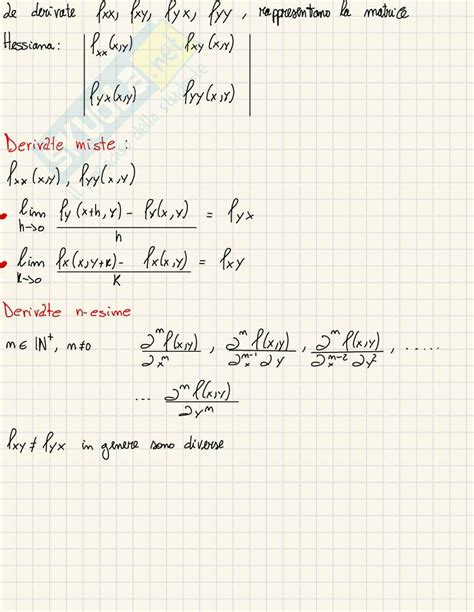 Le derivate fxx, fxy, fyx, fyy, rappresentano la matrice
Hessiana: | fxx(x,y) fxy(x,y) |
| fyx(x,y) fyy(x,y) |
SKUOLA.net
Derivate miste:
fxx(x,y), fyy(x,y)
• lim h→0 (fy(x+h,y) - fy(x,y)) / h = fyx
• lim k→0 (fx(x,y+k) - fx(x,y)) / k = fxy
Derivate n-esime
m ∈ ℕ⁺, m≠0 ∂ᵐf(x,y)/∂xᵐ , ∂ᵐf(x,y)/∂xᵐ⁻¹∂y , ∂ᵐf(x,y)/∂xᵐ⁻²∂y² , .....
... ∂ᵐf(x,y)/∂yᵐ
fxy ≠ fyx in genere sono diverse